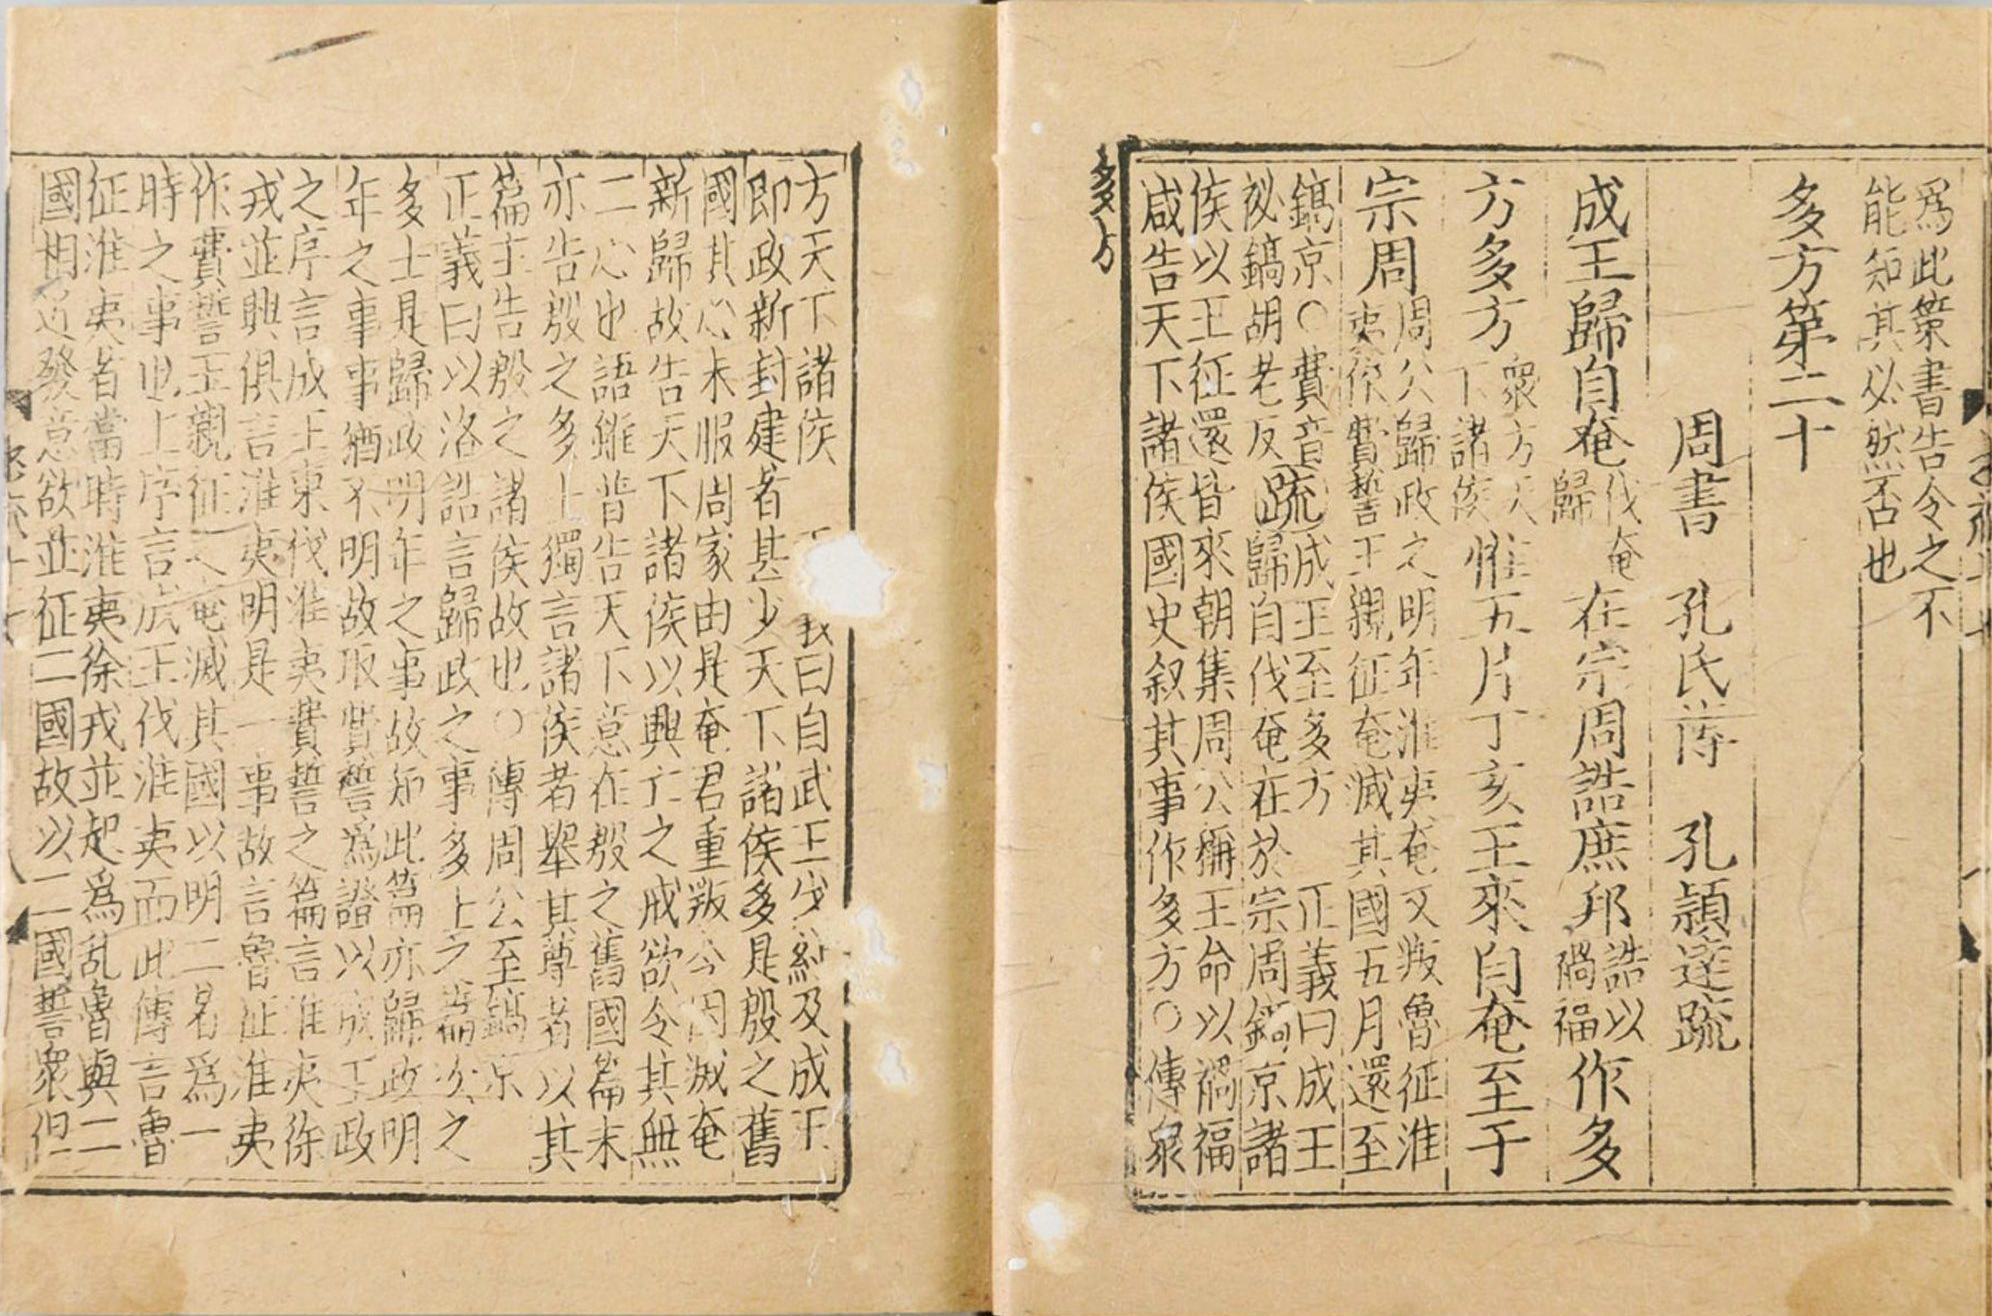 爲此策書告令之不
能知其必然否也
多方第二十
周書 孔氏傳 孔穎達疏
成王歸自奄伐奄歸在宗周誥庶邦誥以禍福作多
方多方衆方天下諸侯惟五月丁亥王來自奄至于
宗周周公歸政之明年淮夷奄又叛魯征淮
夷作費誓王親征奄滅其國五月還至
鎬京○費音祕鎬胡老反疏成王至多方 正義曰成王
歸自伐奄在於宗周鎬京諸
侯以王征還皆來朝集周公稱王命以禍福
咸告天下諸侯國史叙其事作多方○傳衆
多方
方天下諸侯 義曰自武王伐紂及成王
即政新封建者甚少天下諸侯多是殷之舊
國其心未服周家由是奄君重叛今因滅奄
新歸故告天下諸侯以興亡之戒欲令其無
二心也語雖普告天下意在殷之舊國篇末
亦告殷之多士獨言諸侯者舉其尊者以其
篇主告殷之諸侯故也○傳周公至鎬京
正義曰以洛誥言歸政之事多士之篇次之
多士是歸政明年之事故知此篇亦歸政明
年之事事猶不明故取費誓爲證以成王政
之序言成王東伐淮夷費誓之篇言淮夷徐
戎並興俱言淮夷明是一事故言魯征淮夷
作費誓王親征之奄滅其國以明二者爲一
時之事也上序言成王伐淮夷而此傳言魯
征淮夷者當時淮夷徐戎並起爲乱魯與二
國相近發意欲並征二國故以二國誓衆但